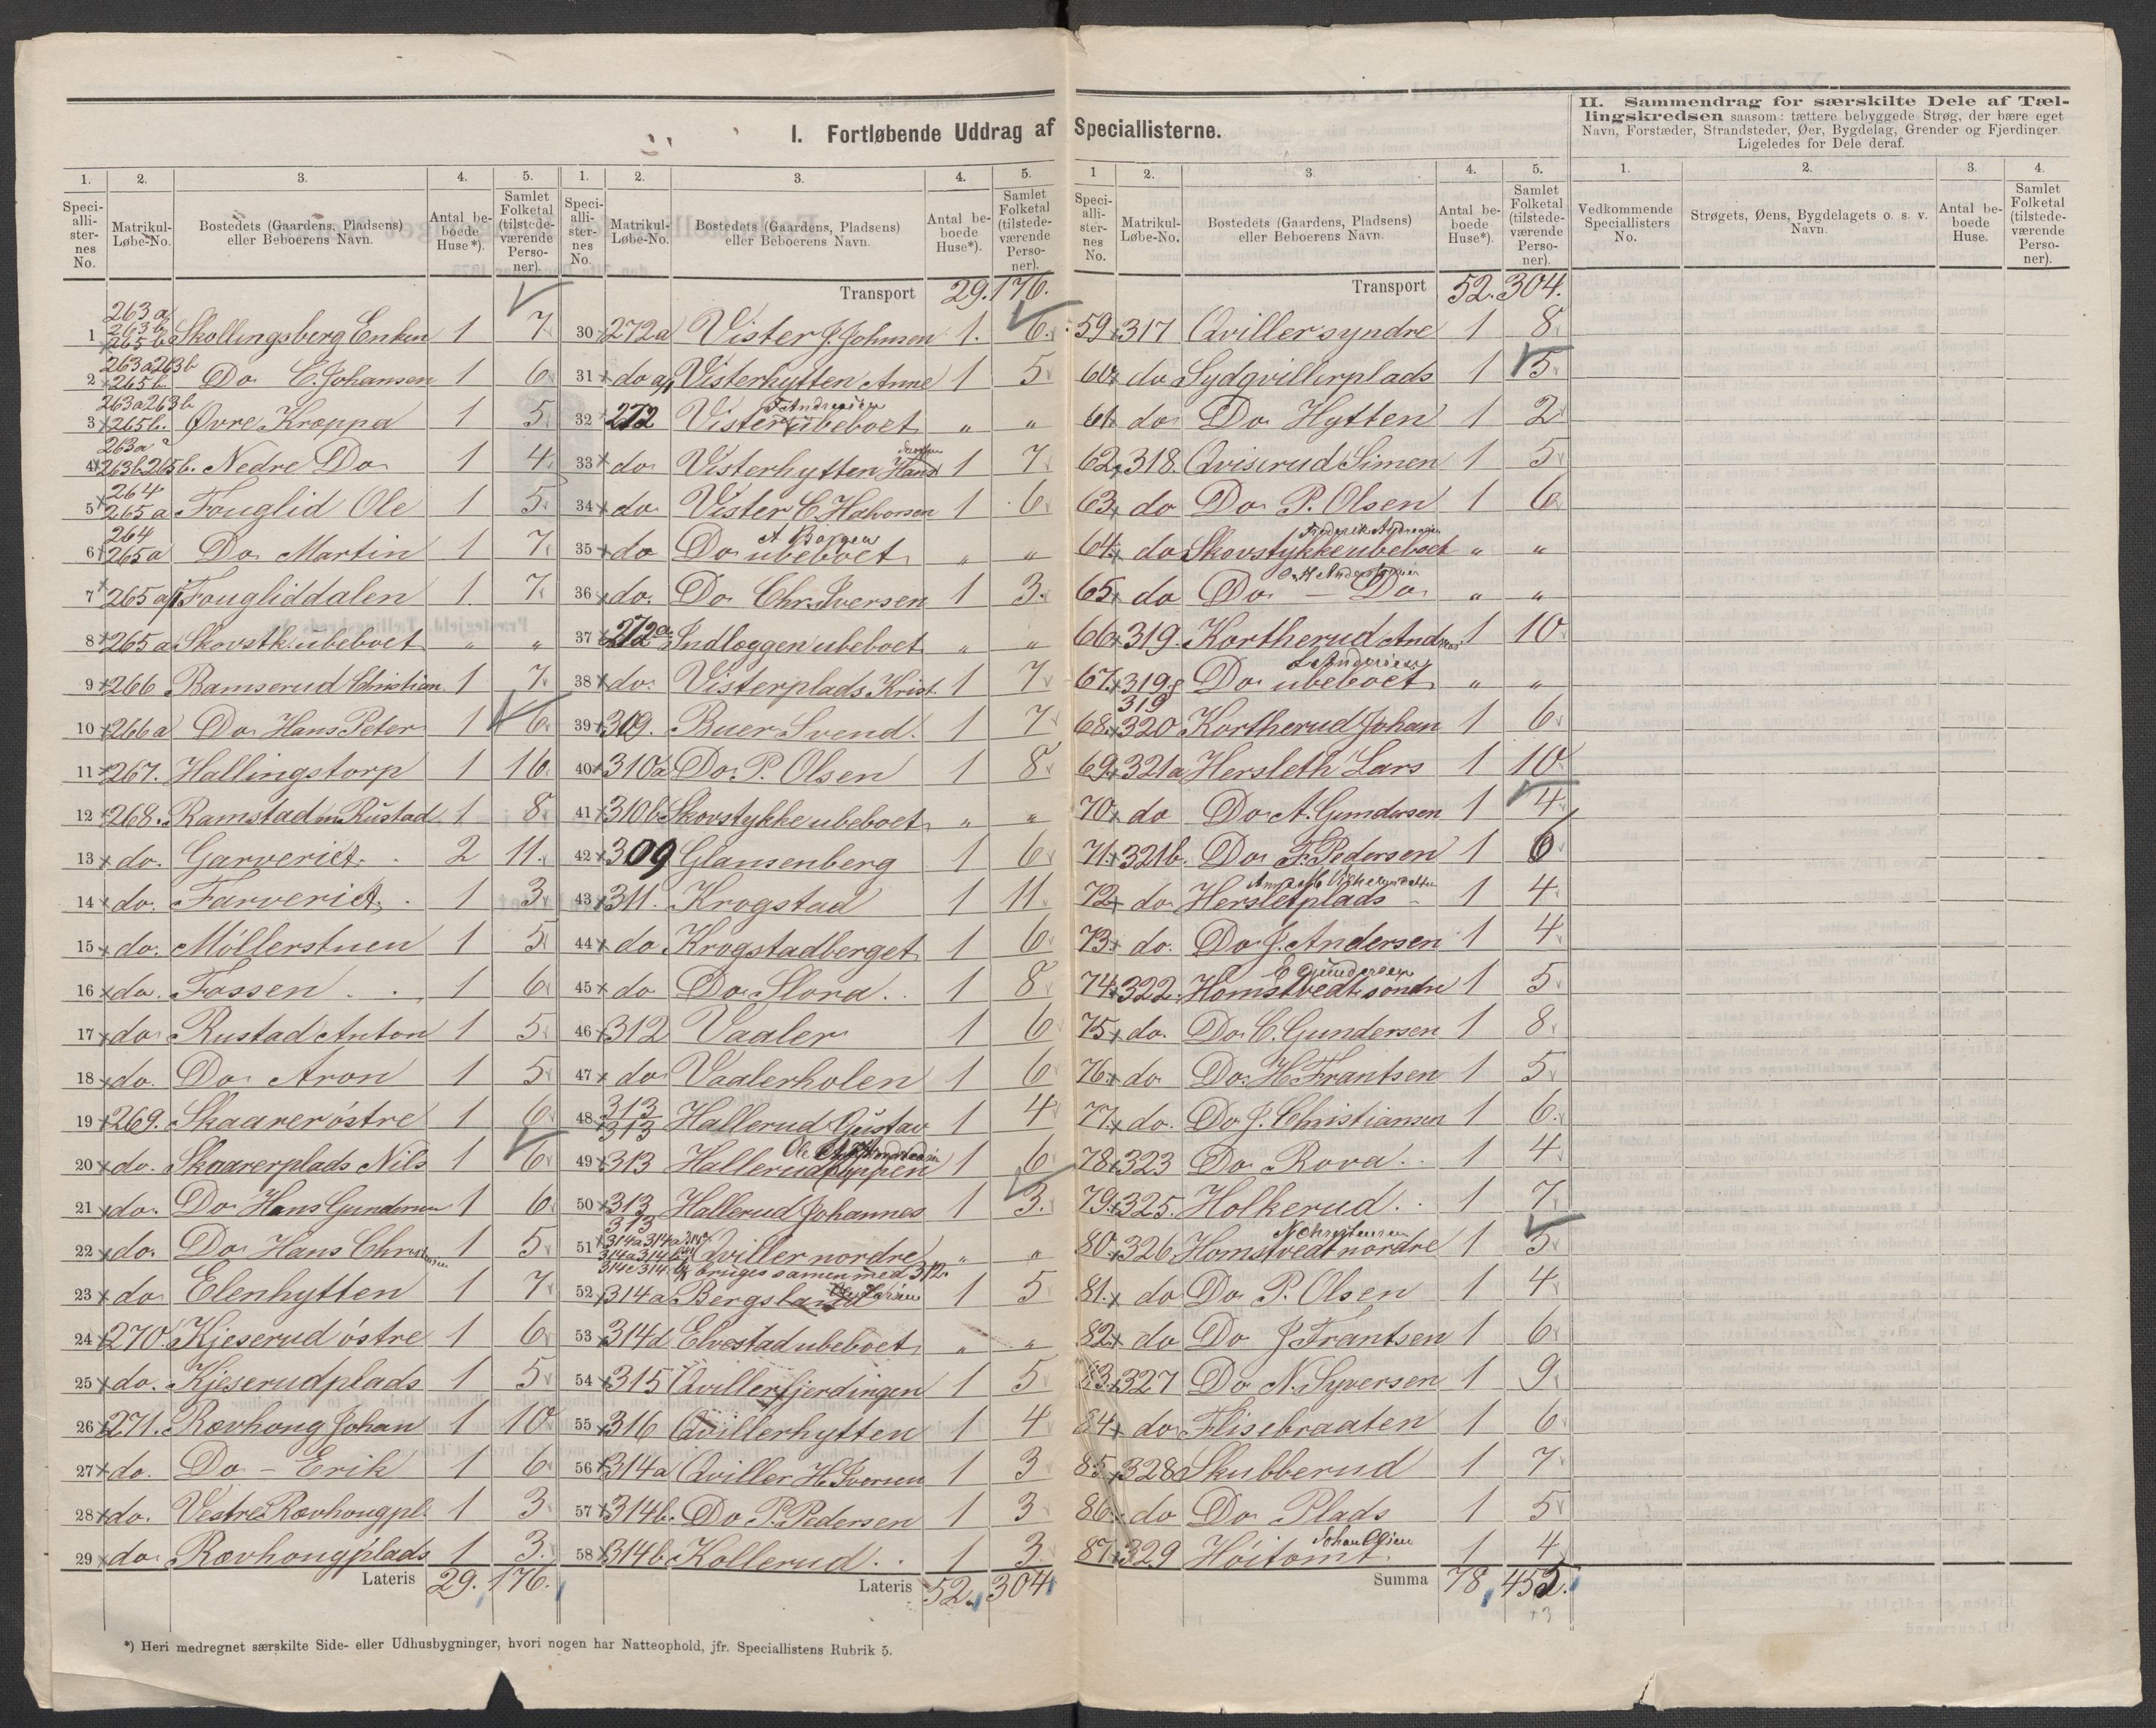 I. Fortløbende Uddrag af Speciallisterne.
1. 2. 3. 4. 5.
Speciallisternes No. Matrikul-Løbe-No. Bostedets (Gaardens, Pladsens) eller Beboerens Navn. Antal beboede Huse*). Samlet Folketal (tilstedeværende Personer).
1 263a 263b 265b Skollingsberg Enken 1 7
2 263a 263b 265b Do C. Johansen 1 6
3 263a 263b 265b. Øvre Kroppa 1 5
4 263a 263b 265b. Nedre Do 1 4
5 264 265a Fouglid Ole 1 5
6 264 265a Do Martin 1 7
7 265a Fougliddalen 1 7
8 265a Skovstk. ubeboet " "
9 266 Ramserud Christian 1 7
10 266a Do Hans Peter 1 6
11 267. Hallingstorp 1 16
12 268. Ramstad m Rustad 1 8
13 do. Garveriet. 2 11
14 do. Farveriet. 1 3
15 do. Möllerstuen 1 5
16 do. Fossen 1 6
17 do Rustad Anton 1 5
18 do. Do Aron 1 5
19 269. Skaarer östre 1 6
20 do. Skaarerplads Nils 1 6
21 do. Do Hans Gundersen 1 6
22 do. Do Hans Christensen 1 5
23 do Elenhytten 1 7
24 270. Kjeserud östre 1 6
25 do. Kjeserudplads 1 5
26 271. Rævhong Johan 1 10
27 do. Do - Erik 1 6
28 do. Vestre Rævhougpl. 1 3
29 do Rævhongplads 1 3.
Lateris 29. 176.
1. 2. 3. 4. 5.
Speciallisternes No. Matrikul-Løbe-No. Bostedets (Gaardens, Pladsens) eller Beboerens Navn. Antal beboede Huse*). Samlet Folketal (tilstedeværende Personer).
Transport 29. 176.
30 272a Vister J. Johnsen 1. 6.
31 do Visterhytten Anne 1 5
32 272 Vister ubeboet " "
33 do Visterhytten Hans 1 7
34 do Vister C. Halvorsen 1 6
35 do Do ubeboet " "
36 do. Do Chr. Iversen 1 3.
37 272a Indlæggen ubeboet " "
38 do. Visterplads Krist. 1 7
39 309. Buer Svend. 1 7
40 310a Do. P. Olsen 1 8
41 310b Skovstykke ubeboet " "
42 309 Glansenberg 1 6
43 311. Krogstad 1 11
44 do Krogstadberget 1 6
45 do Do Slora 1 8
46 312 Vaaler 1 6
47 do Vaalerholen 1 6
48 313 313 Hallerud Gustav 1 4
49 313 Halleruddyppen 1 6
50 313 Hallerud Johannes 1 3.
51 313 314a 314a Qviller nordre " "
bruges samen med 312.
52 314a Bergsland 1 5
53 314d Elvestad ubeboet " "
54 315 Qviller fjerdingen 1 5
55 316 Qvillerhytten 1 4
56 314a Qviller H. Iversen 1 3
57 314b. Do P. Pedersen 1 3
58 314b Kollerud 1 3
Lateris 52. 304
1 2. 3. 4. 5.
Speciallisternes No. Matrikul-Løbe-No. Bostedets (Gaardens, Pladsens) eller Beboerens Navn. Antal beboede Huse*). Samlet Folketal (tilstedeværende Personer).
Transport 52. 304.
59 317 Qviller syndre 1 8
60 do Sydqvillerplads 1 5
61 do Do Hytten 1 2
62 318. Qviserud Simen 1 5
63 do Do P. Olsen 1 6
64 do Skovstykke ubeboet " "
65 do Do - Do " "
66 319. Kortherud Andreas 1 10
67 319 Do ubeboet " "
68 319 320 Kortherud Johan 1 6
69 321a Hersleth Lars 1 10
70 do Do A. Gundersen 1 4
71 321b. Do F. Pedersen 1 6
72 do Hersletplads 1 4
73 do. Do J. Andersen 1 4
E Gundersen
74 322. Homstvedt söndre 1 5
75 do. Do C. Gundersen 1 8
76 do Do. H. Frantsen 1 5
77 do. Do J. Christiansen 1 6.
78 323 Do Rova 1 4
79 325. Holkerud 1 7
N Christensen
80 326 Homstvedt nordre 1 5
81 do Do P. Olsen 1 4
82 do Do J Frantsen 1 6
83 327 Do N. Syversen 1 9
84 do Flisebraaten 1 6
85 328 Skubberud 1 7
86 do Do Plads 1 5
87 329 Höitomt. Johan Olsen 1 4
Summa 78 455.
II. Sammendrag for særskilte Dele af Tællingskredsen saasom: tættere bebyggede Strøg, der bære eget Navn, Forstæder, Strandsteder, Øer, Bygdelag, Grender og Fjerdinger. Ligeledes for Dele deraf.
1. 2. 3. 4.
Vedkommende Speciallisters No. Strøgets, Øens, Bygdelagets o. s. v. Navn. Antal beboede Huse. Samlet Folketal (tilstedeværende Personer).
*) Heri medregnet særskilte Side- eller Udhusbygninger, hvori nogen har Natteophold, jfr. Speciallistens Rubrik 5.